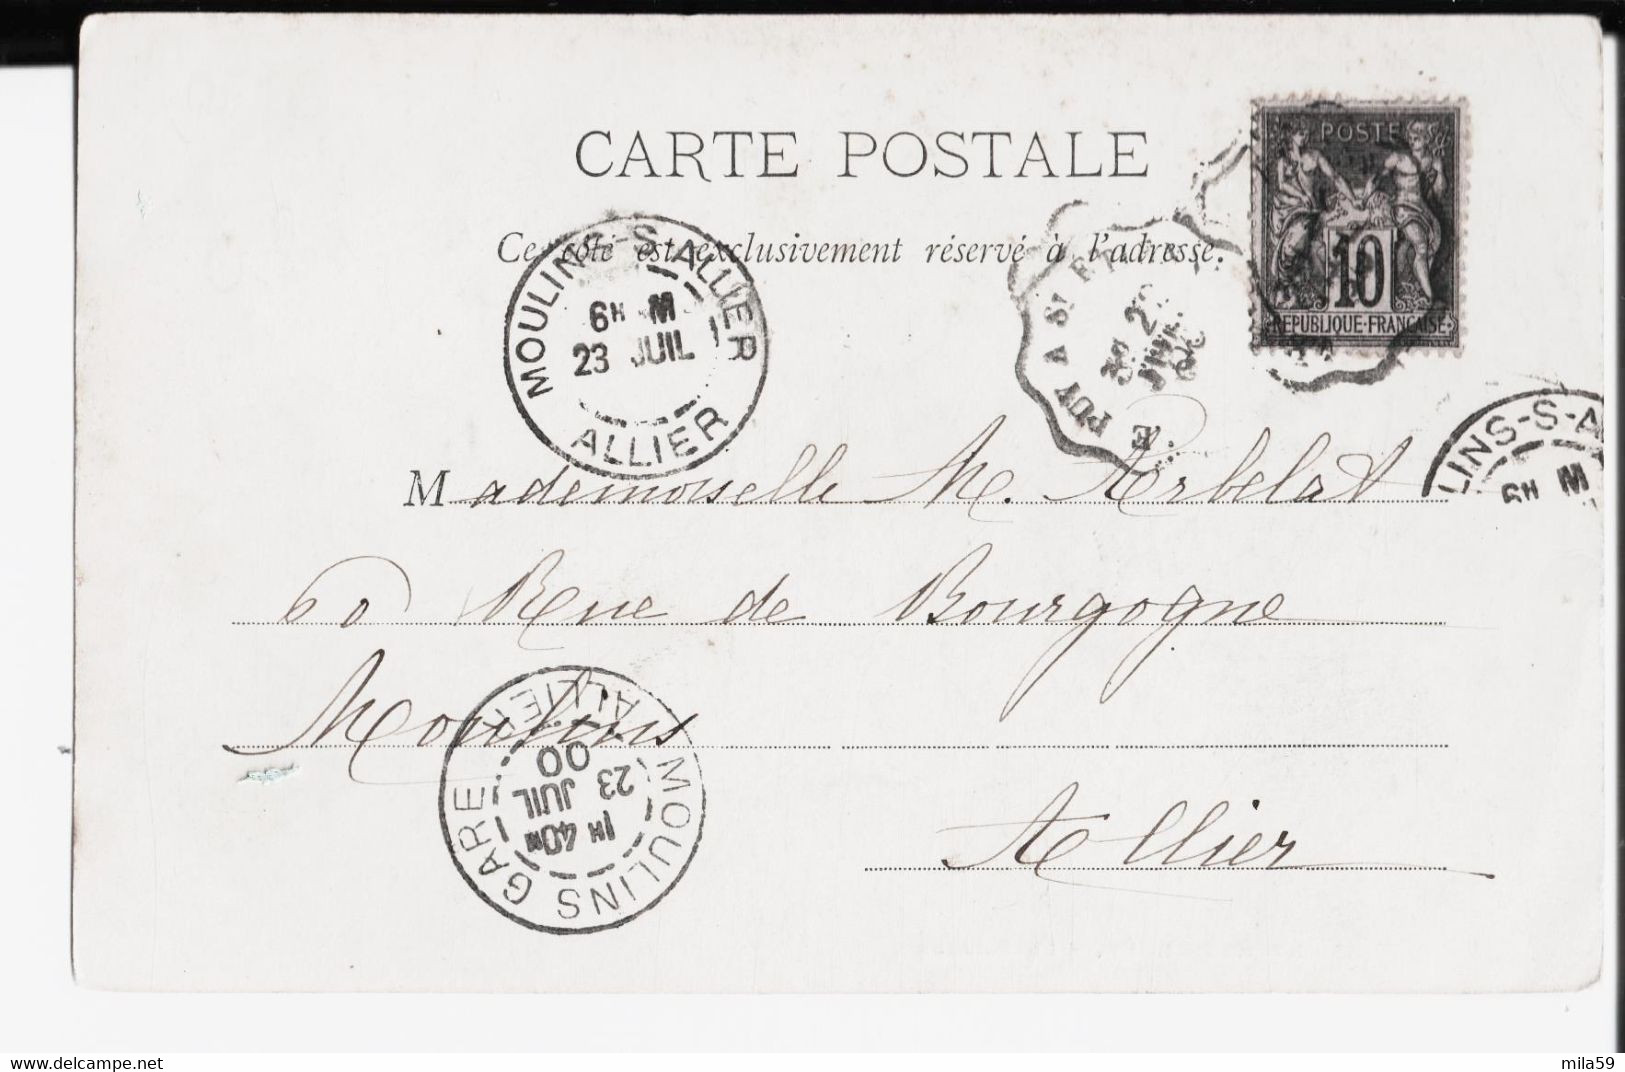 CARTE POSTALE
Ce côté est exclusivement réservé à l'adresse.
POSTE
10
REPUBLIQUE FRANÇAISE
MOULINS-S-ALLIER
6H M
23 JUIL
ALLIER
E PUY A St E
LINS-S-A
6H M
Mademoiselle M. Arbelat
60 Rue de Bourgogne
Moulins
Allier
MOULINS GARE
1H 40M
23
JUIL
00
ALLIER
mila59